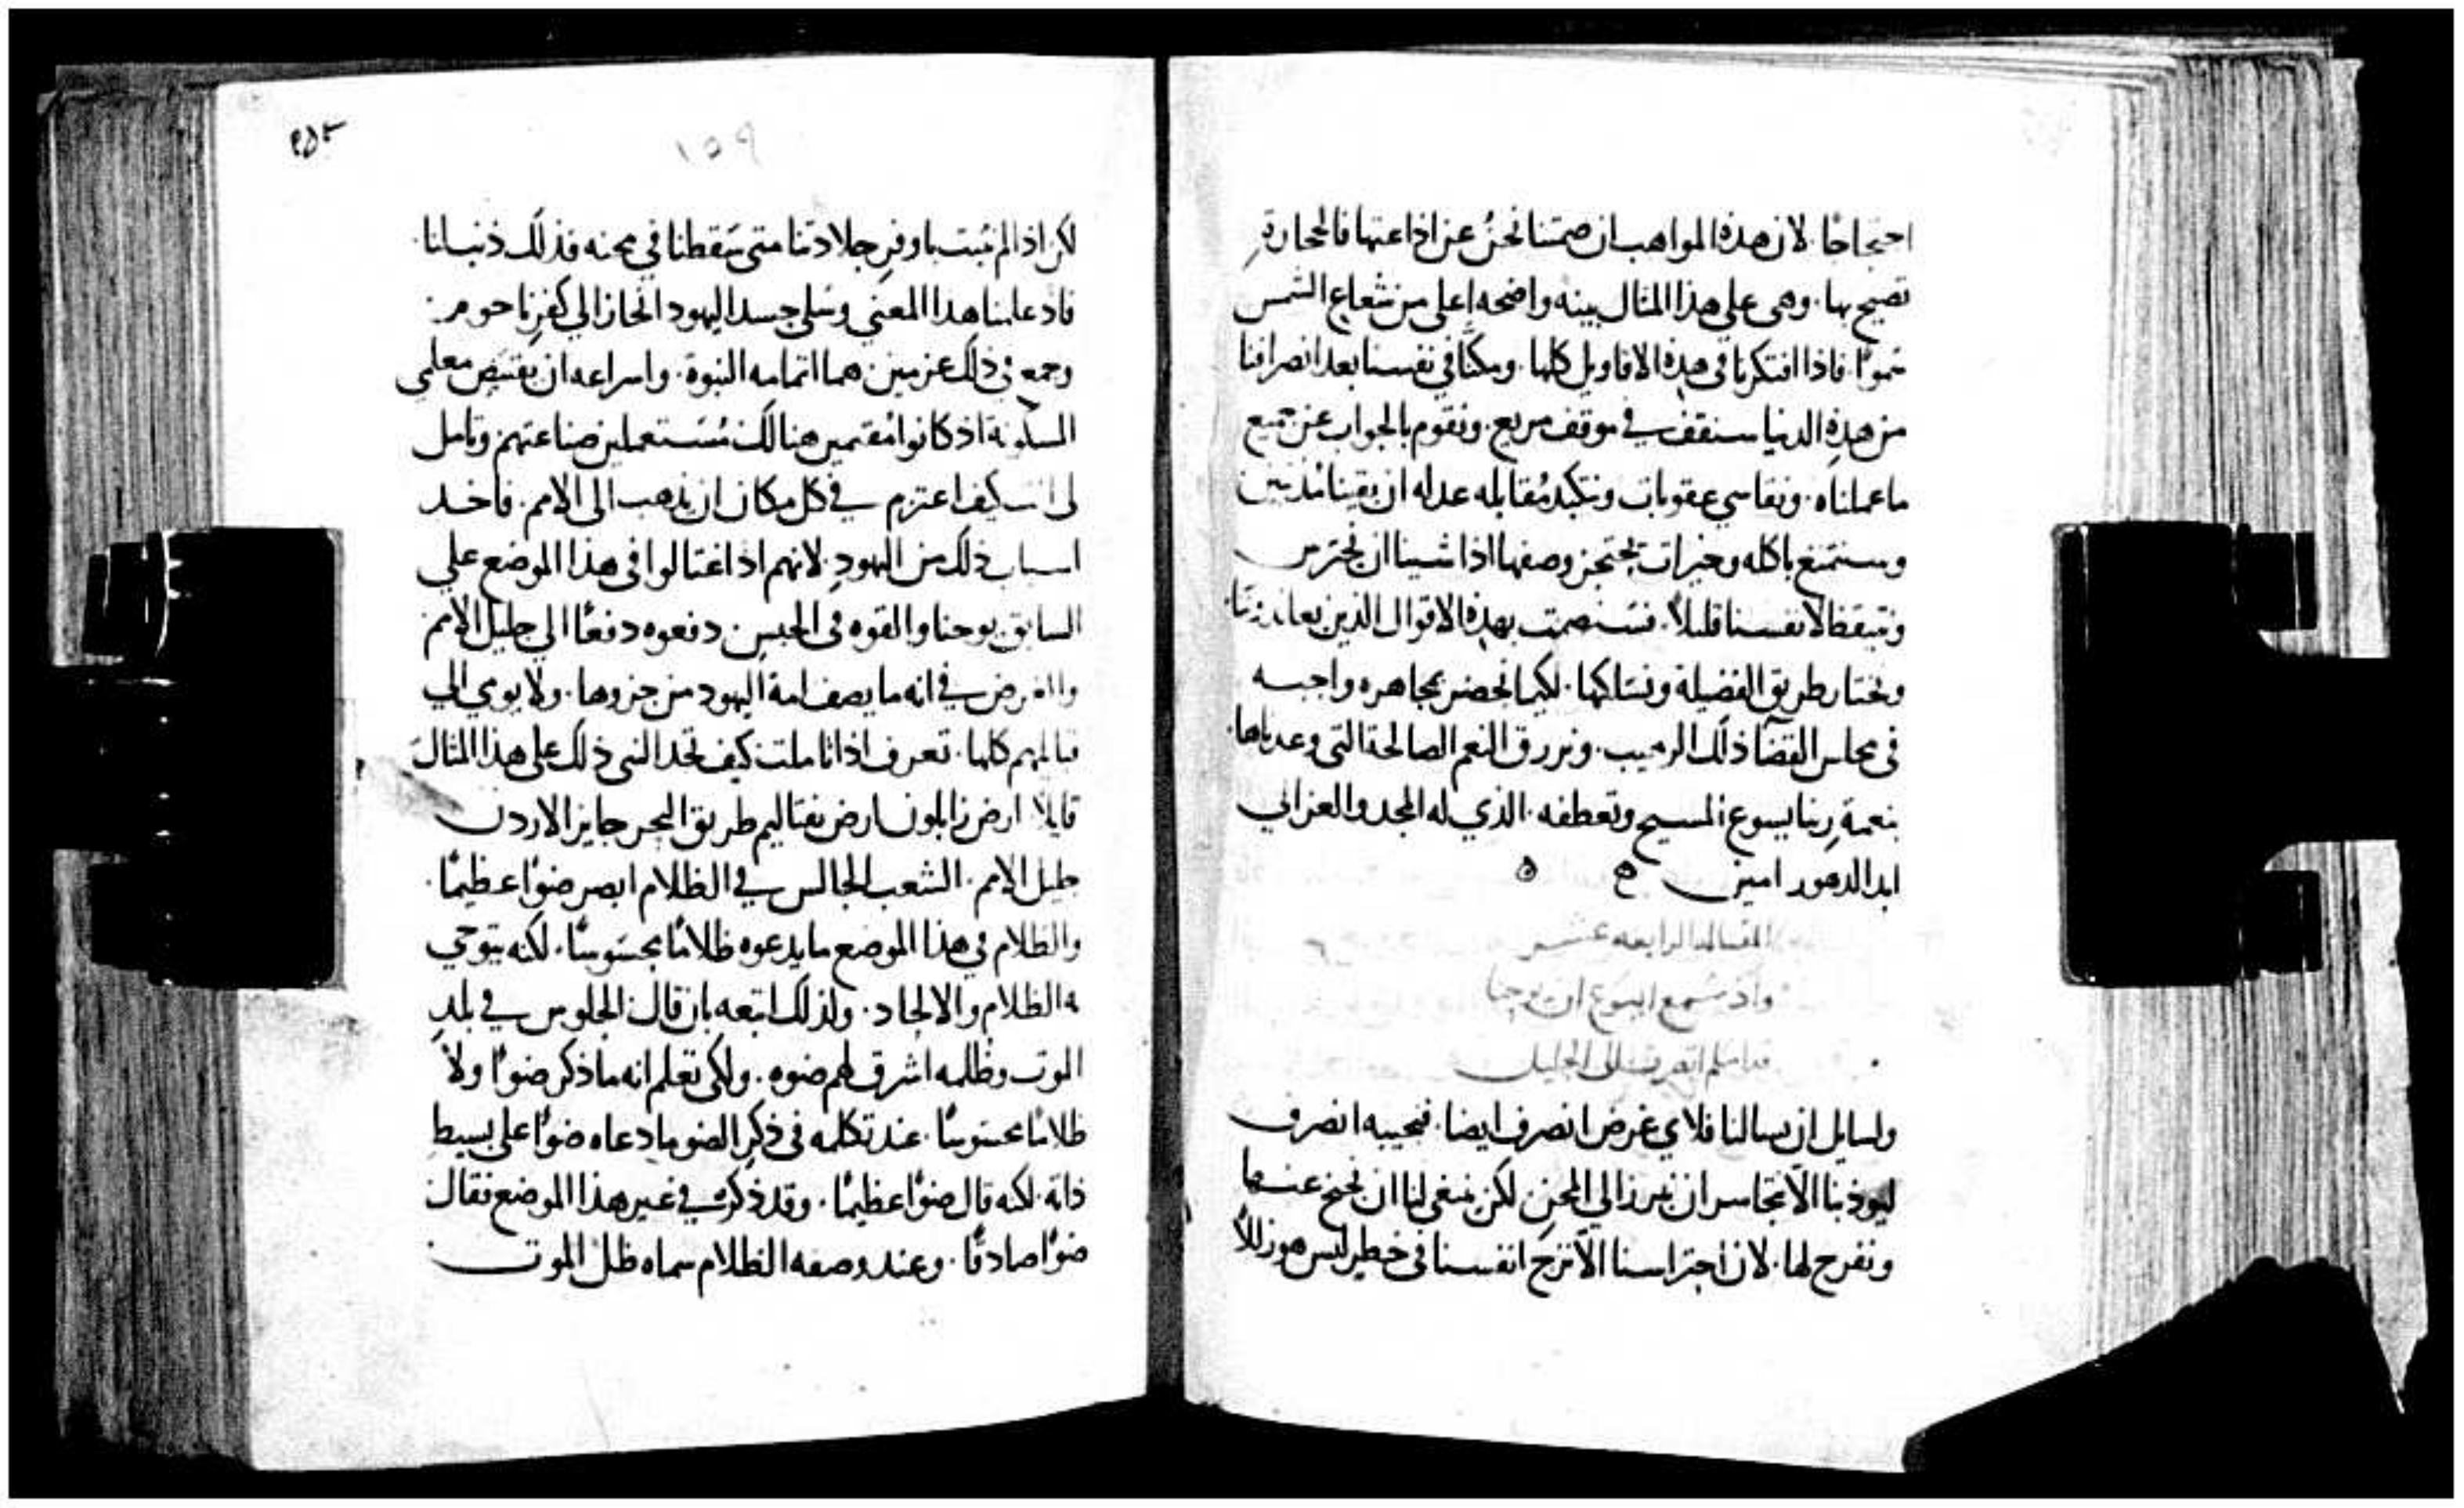 احتجاجًا. لان هذه المواهب ان صمتنا نحنُ عن اذاعتها فالحجارة
تصيح بها. وهي علي هذا المثال بينه واضحه اعلي من شعاع الشمس
نموًا. فاذا افتكرنا في هذه الاقاويل كلها. ومكنّا في نفسنا بعد انصرافنا
من هذه الدنيا سنقف في موقف مريع. ونقوم بالجواب عن جميع
ما عملناه. ونقاسي عقوبات ونتكبد مُقابله عدله ان بقينا مُذنبين
وسنتمتع باكله وخيرات يحتجز وصفها اذا شينا ان نحترس
ونتيقظ لانفسنا قليلاً. فسنصمت بهذه الاقوال الذين يعاندوننا
ونختار طريق الفضيلة ونسلكها. لكيما نحضر بمجاهره واجبه
في مجلس القضا ذلك الرهيب. ونرزق النعم الصالحة التي وعدناها
بنعمة ربنا يسوع المسيح وتعطفه. الذي له المجد والعز الي
ابد الدهور امين
المقاله الرابعه عشر
واذ سمع ايسوع ان يوحنا
قد اسلم انصرف الى الجليل
ولسايل ان يسالنا فلاي غرض انصرف ايضا. فنجيبه انصرف
ليودبنا الّا نتجاسر ان نبرز الي المحن. لكن ينبغي لنا ان نجنح عنها
ونفرج لها. لان احتراسنا الّا نزج انفسنا في خطر ليس هو زللاً
١٥٩
لكن اذا لم نثبت باوفر جلادتنا متى سقطنا في محنه فذلك ذنب لنا
فاذ علمنا هذا المعني وسلي حسد اليهود انحاز الي كفرناحوم.
وجمع في ذلك عزمين هما اتمامه النبوة. واسراعه ان يقتنص معلمي
المسكونة اذ كانوا مُقيمين هنالك مُستعملين صناعتهم وتامل
لي انت كيف اعتزم في كل مكان ان يذهب الى الامم. فاخد
اسباب ذلك من اليهود. لانهم اذ اغتالوا في هذا الموضع علي
السابق يوحنا والقوه في الحبس. دفعوه دفعًا الي جليل الامم
والغرض في انه ما يصف امة اليهود من جزوها. ولا يومي الي
قبايلهم كلها. تعرف اذا تاملت كيف تحد النبي ذلك على هذا المثال
قايلاً ارض زابلون ارض نفتاليم طريق البحر جايز الاردن
جليل الامم. الشعب الجالس في الظلام ابصر ضوًا عظيمًا.
والظلام في هذا الموضع ما يدعوه ظلامًا محسوسًا. لكنه يتوخي
به الظلام والالحاد. ولذلك اتبعه بان قال الجلوس في بلد
الموت وظلمه اشرق لهم ضوه. ولكي تعلم انه ما ذكر ضوًا ولا
ظلامًا محسوسًا. عند تكلمه في ذكر الضو ما دعاه ضوًا على بسيط
ذاته. لكنه قال ضوًا عظيمًا. وقد ذكره في غير هذا الموضع فقال
ضوًا صادقًا. وعند وصفه الظلام سماه ظل الموت